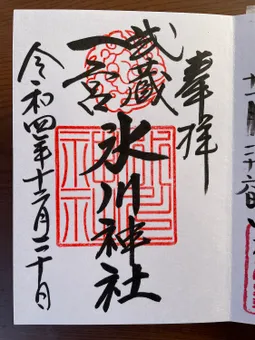 奉拝
武蔵
一宮
氷川神社
令和四年十二月二十日